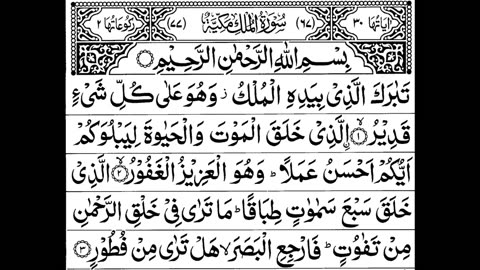 اٰیَاتُهَا ۳۰ (۶۷) سُوْرَةُ الْمُلْكِ مَكِّیَّةٌ (۷۷) رُكُوْعَاتُهَا ۲
بِسْمِ اللّٰهِ الرَّحْمٰنِ الرَّحِیْمِ
تَبٰرَكَ الَّذِیْ بِیَدِهِ الْمُلْكُ ز وَهُوَ عَلٰی كُلِّ شَیْءٍ
قَدِیْرُ ۙ﴿۱﴾ اِلَّذِیْ خَلَقَ الْمَوْتَ وَالْحَیٰوةَ لِیَبْلُوَكُمْ
اَیُّكُمْ اَحْسَنُ عَمَلًا ؕ وَهُوَ الْعَزِیْزُ الْغَفُوْرُ ۙ﴿۲﴾ الَّذِیْ
خَلَقَ سَبْعَ سَمٰوٰتٍ طِبَاقًا ؕ مَا تَرٰی فِیْ خَلْقِ الرَّحْمٰنِ
مِنْ تَفٰوُتٍ ؕ فَارْجِعِ الْبَصَرَ ۙ هَلْ تَرٰی مِنْ فُطُوْرٍ ﴿۳﴾